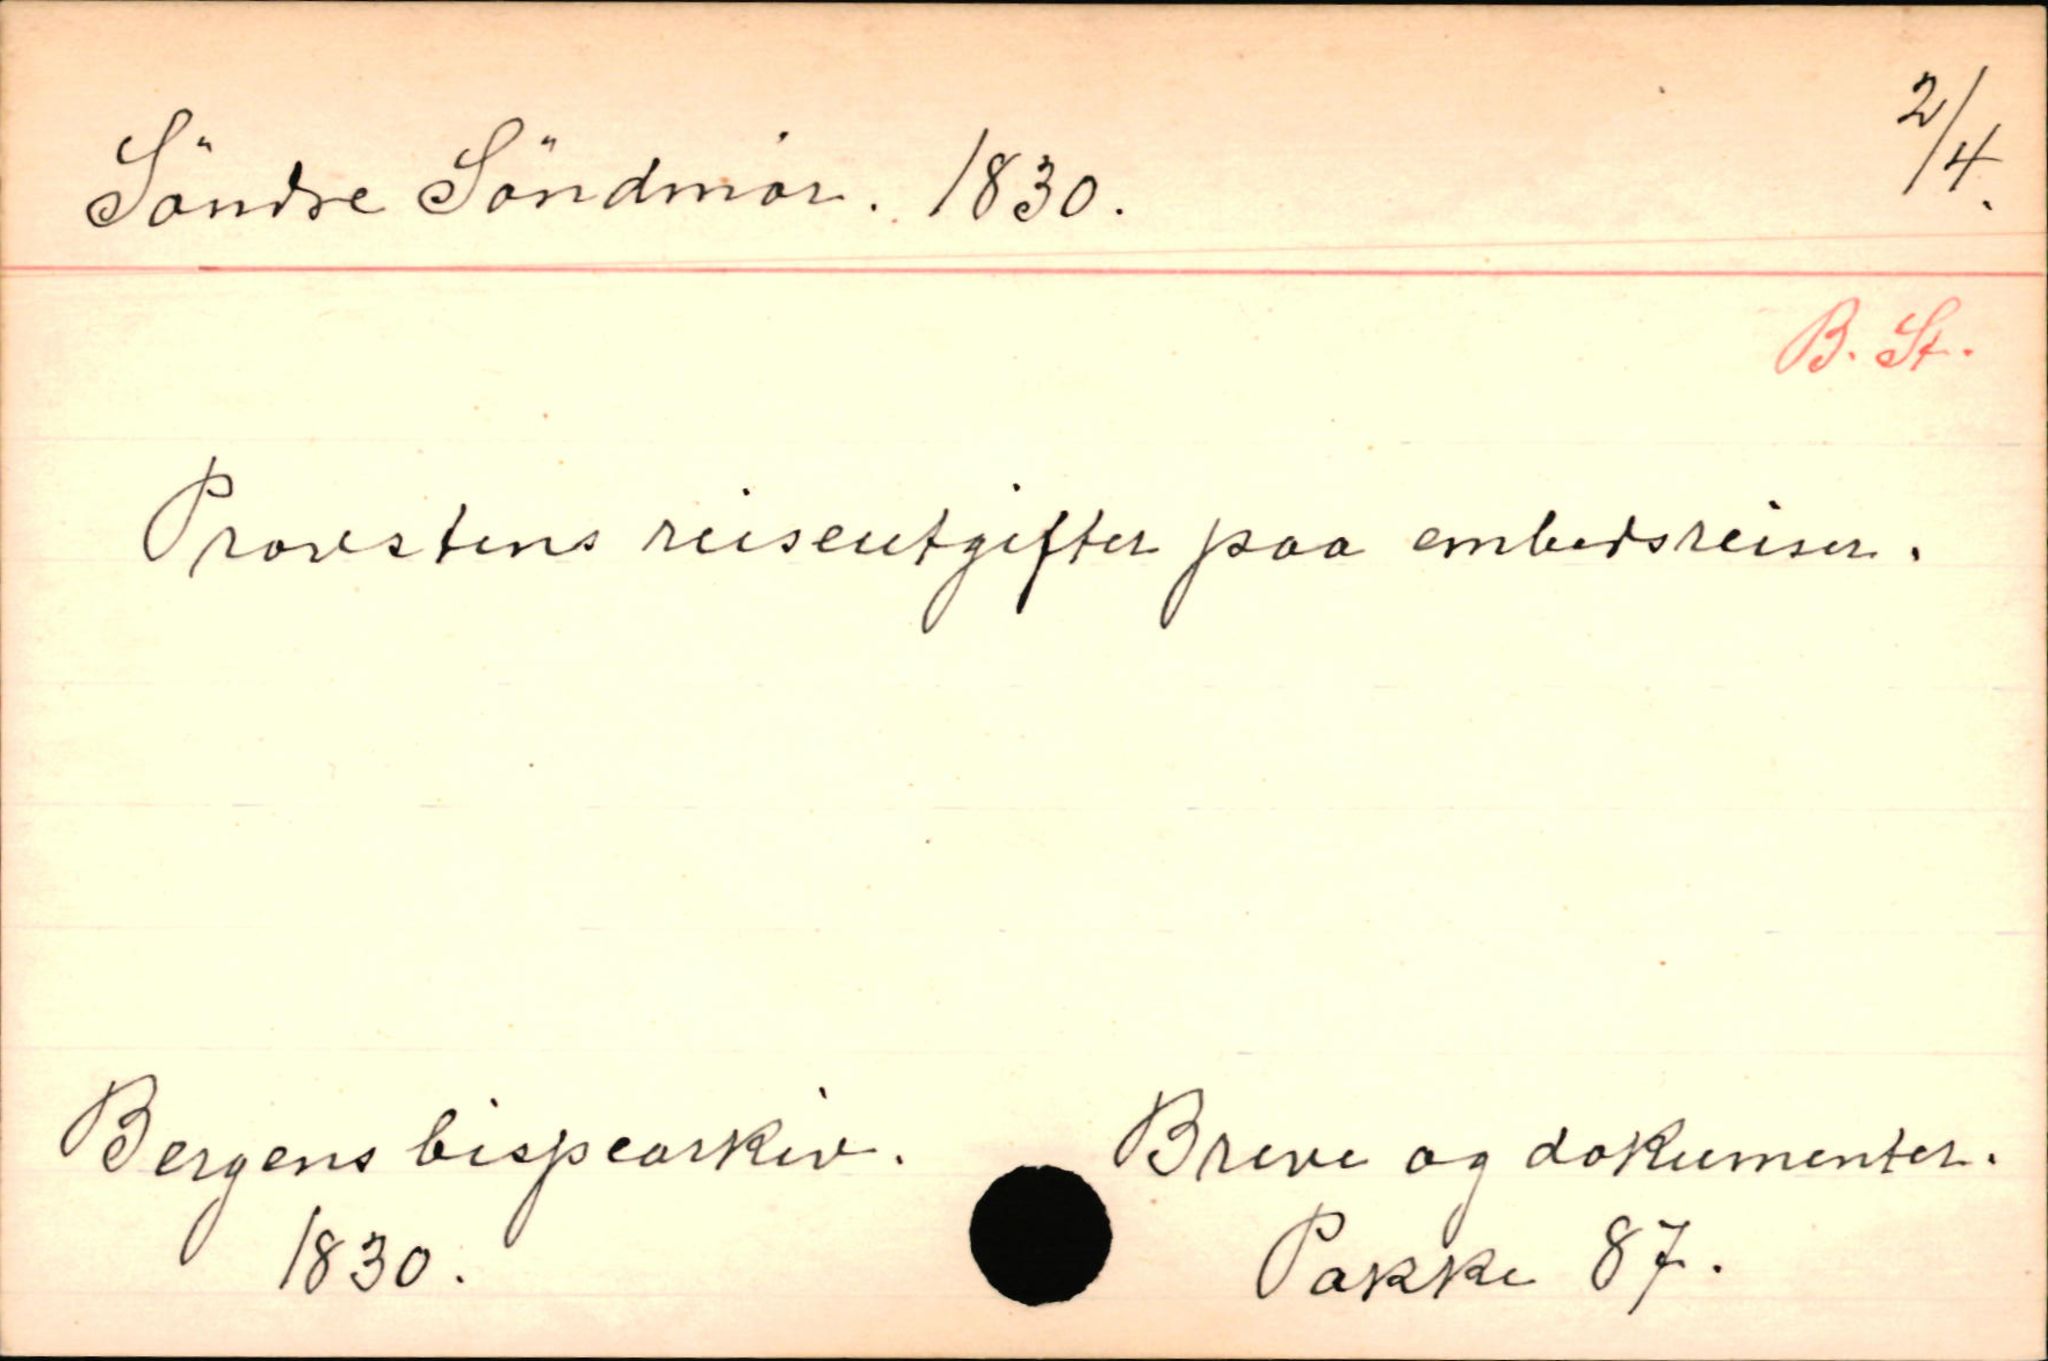 Söndre Söndmör. 1830.
2/4.
B. St.
Provstens reiseutgifter paa embedsreiser.
Bergens bispearkiv.
1830.
Breve og dokumenter.
Pakke 87.